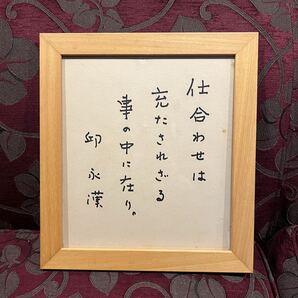 仕合わせは
充たされざる
事の中に在り。
邱永漢